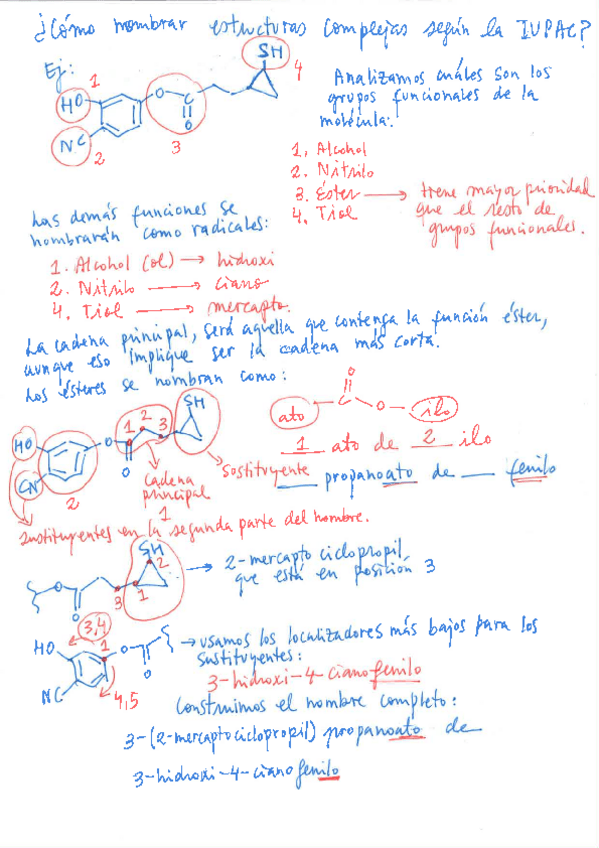 ¿Cómo nombrar estructuras complejas según la IUPAC?
Ej:
SH
1
HO
O
C
O
4
NC
2
3
Analizamos cuáles son los
grupos funcionales de la
molécula:
1. Alcohol
2. Nitrilo
3. Éster → tiene mayor prioridad
que el resto de
grupos funcionales.
4. Tiol
Las demás funciones se
nombrarán como radicales:
1. Alcohol (ol) → hidroxi
2. Nitrilo → ciano
4. Tiol → mercapto.
La cadena principal, será aquella que contenga la función éster,
aunque eso implique ser la cadena más corta.
Los ésteres se nombran como:
SH
HO
O
1 2 3
O
CN
2
Cadena
principal
1
Sustituyente
O
ato C O ilo
1 ato de 2 ilo
propanoato de fenilo
Sustituyentes en la segunda parte del nombre.
SH
2
O
O
3 1
→ 2-mercaptociclopropil,
que está en posición 3
3,4
HO
1
O
O
NC
4,5
→ usamos los localizadores más bajos para los
sustituyentes:
3-hidroxi-4-cianofenilo
Construimos el nombre completo:
3-(2-mercaptociclopropil) propanoato de
3-hidroxi-4-cianofenilo